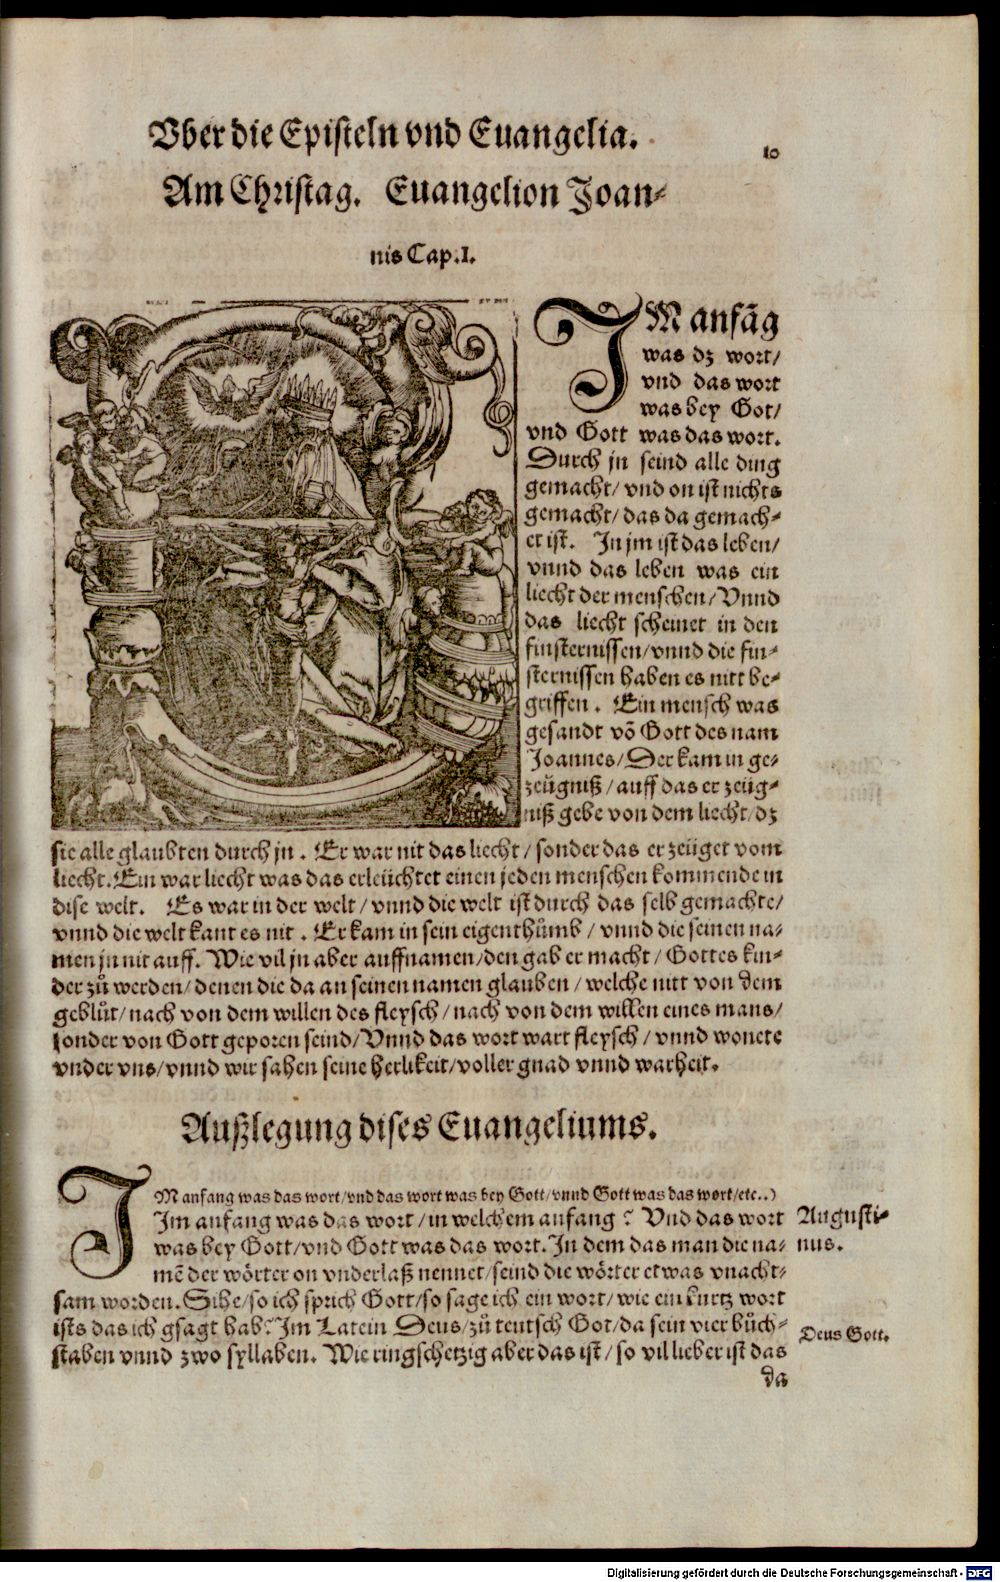 Vber die Episteln vnd Euangelia.
10
Am Christag. Euangelion Joan-
nis Cap.I.
IM anfãg
was dz wort/
vnd das wort
was bey Got/
vnd Gott was das wort.
Durch jn seind alle ding
gemacht/ vnd on ist nichts
gemacht/ das da gemach-
et ist. In jm ist das leben/
vnnd das leben was ein
liecht der menschen/ Vnnd
das liecht scheinet in den
finsternissen/ vnnd die fin-
sternissen haben es nitt be-
griffen. Ein mensch was
gesandt võ Gott des nam
Joannes/ Der kam in ge-
zeügniß/ auff das er zeüg-
niß gebe von dem liecht/ dz
sie alle glaubten durch jn. Er war nit das liecht/ sonder das er zeüget vom
liecht. Ein war liecht was das erleüchtet einen jeden menschen kommende in
dise welt. Es war in der welt/ vnnd die welt ist durch das selb gemachte/
vnnd die welt kant es nit. Er kam in sein eigenthůmb/ vnnd die seinen na-
men jn nit auff. Wie vil jn aber auffnamen/ den gab er macht/ Gottes kin-
der zů werden/ denen die da an seinen namen glauben/ welche nitt von dem
geblůt/ nach von dem willen des fleysch/ nach von dem willen eines mans/
sonder von Gott geporen seind/ Vnnd das wort wart fleysch/ vnnd wonete
vnder vns/ vnnd wir sahen seine herlikeit/ voller gnad vnnd warheit.
Außlegung dises Euangeliums.
IM anfang was das wort/ vnd das wort was bey Gott/ vnnd Gott was das wort/ etc..)
Im anfang was das wort/ in welchem anfang? Vnd das wort
was bey Gott/ vnd Gott was das wort. In dem das man die na-
mẽ der wörter on vnderlaß nennet/ seind die wörter etwas vnacht-
sam worden. Sihe/ so ich sprich Gott/ so sage ich ein wort/ wie ein kurtz wort
ists das ich gsagt hab? Im Latein Deus/ zů teutsch Got/ da sein vier bůch-
staben vnnd zwo syllaben. Wie ringschetzig aber das ist/ so vil lieber ist das
da
Augusti-
nus.
Deus Gott.
Digitalisierung gefördert durch die Deutsche Forschungsgemeinschaft - DFG